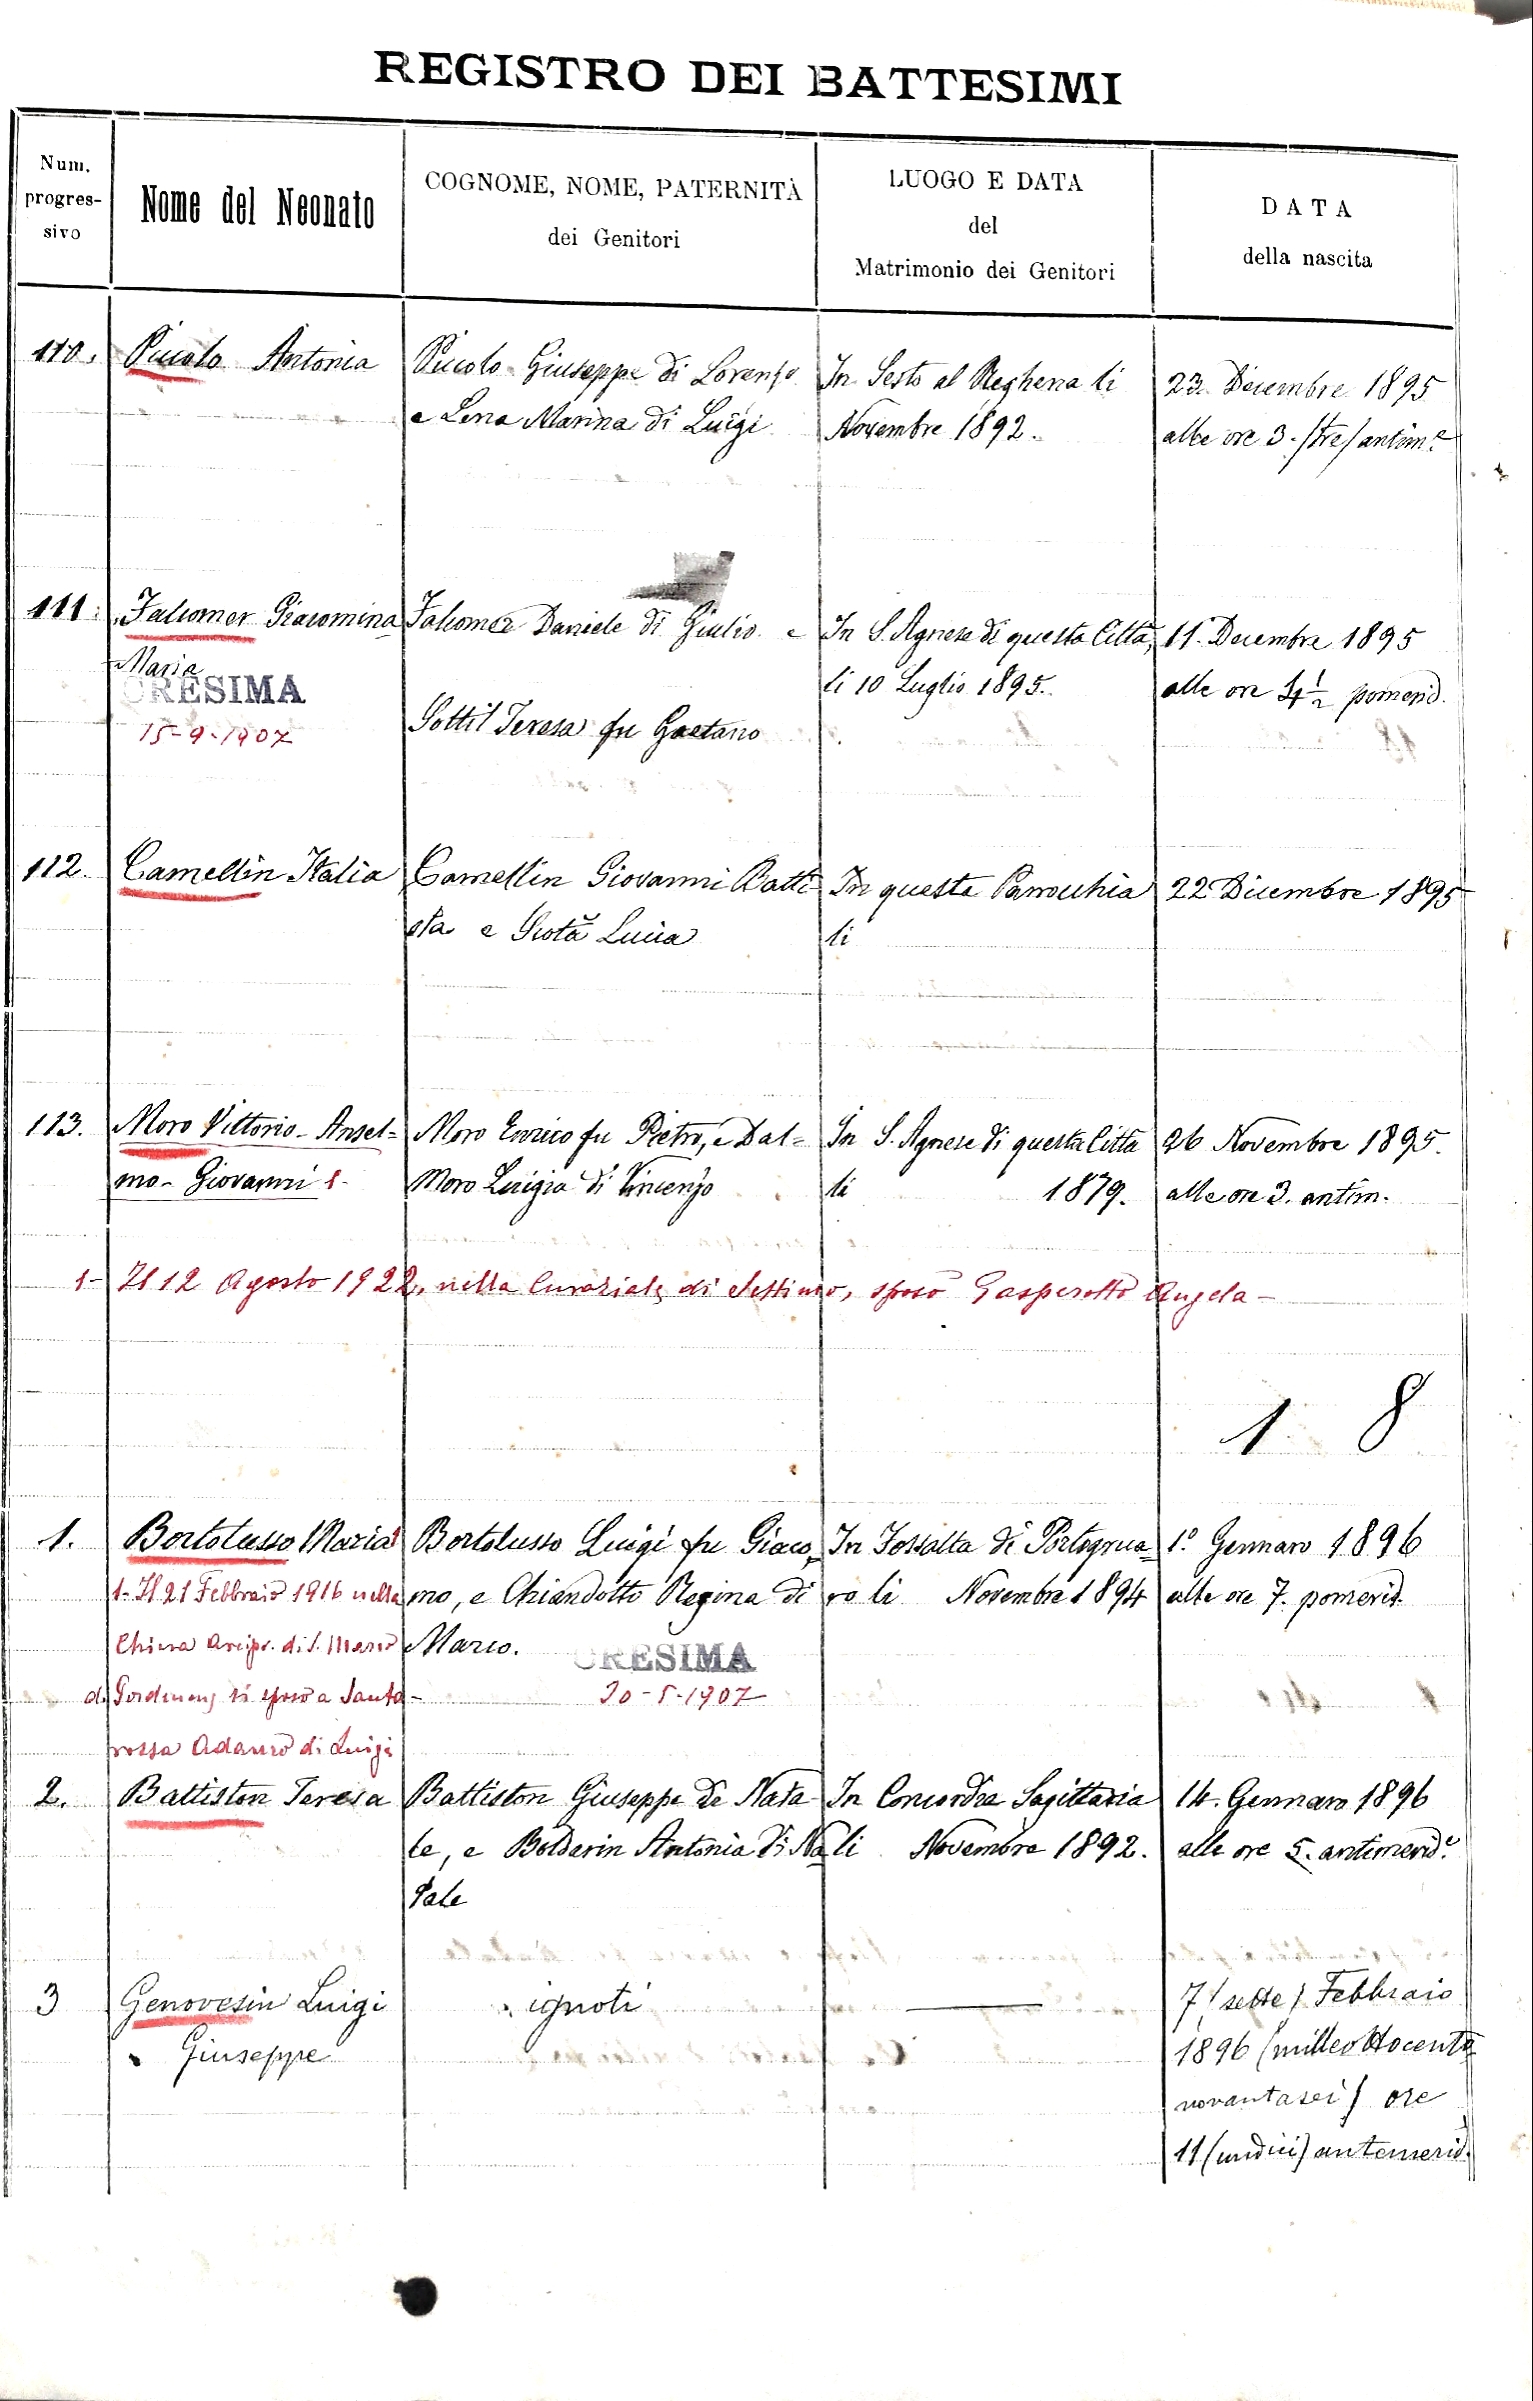 REGISTRO DEI BATTESIMI
Num. progres- sivo
Nome del Neonato
COGNOME, NOME, PATERNITÀ
dei Genitori
LUOGO E DATA
del
Matrimonio dei Genitori
DATA
della nascita
110. Piccolo Antonia
Piccolo Giuseppe di Lorenzo
e Lena Marina di Luigi
In Sesto al Reghena li
Novembre 1892.
23. Dicembre 1895
alle ore 3. /tre/ antim.e
111. Falcomer Giacomina
Maria
CRESIMA
15-9-1907
Falcomer Daniele di Giulio e
Sottil Teresa fu Gaetano
In S. Agnese di questa Città,
li 10 Luglio 1895.
11. Decembre 1895
alle ore 4 1/2 pomerid.
112. Camellin Italia
Camellin Giovanni Batti
sta e Lucia
In questa Parrocchia
li
22 Dicembre 1895
113. Moro Vittorio-Ansel=
mo-Giovanni 1-
Moro Enrico fu Pietro, e Dal=
Moro Luigia di Vincenzo
In S. Agnese di questa Città
li 1879.
26 Novembre 1895.
alle ore 3. antim.
1- Il 12 Agosto 1922, nella Curaziale di Settimo, sposò Gasperotto Angela-
1 8
1. Bortolusso Maria 1
1- Il 21 Febbraio 1916 nella
Chiesa Arcipr. di S. Marco
di Pordenone si sposò a Santa-
rossa di Luigi
Bortolusso Luigi fu Giaco=
mo, e Chiandotto Regina di
Marco.
CRESIMA
30-5-1907
In Fossalta di Portogrua=
ro li Novembre 1894
1.° Gennaro 1896
alle ore 7. pomerid.
2. Battiston Teresa
Battiston Giuseppe di Nata
le, e Boldarin Antonia di Na
tale
In Concordia Sagittaria
li Novembre 1892.
14. Gennaro 1896
alle ore 5. antimerid.e
3 Genovesin Luigi
Giuseppe
ignoti
7 (sette) Febbraio
1896 (milleottocento
novantasei) ore
11 (undici) antemerid.